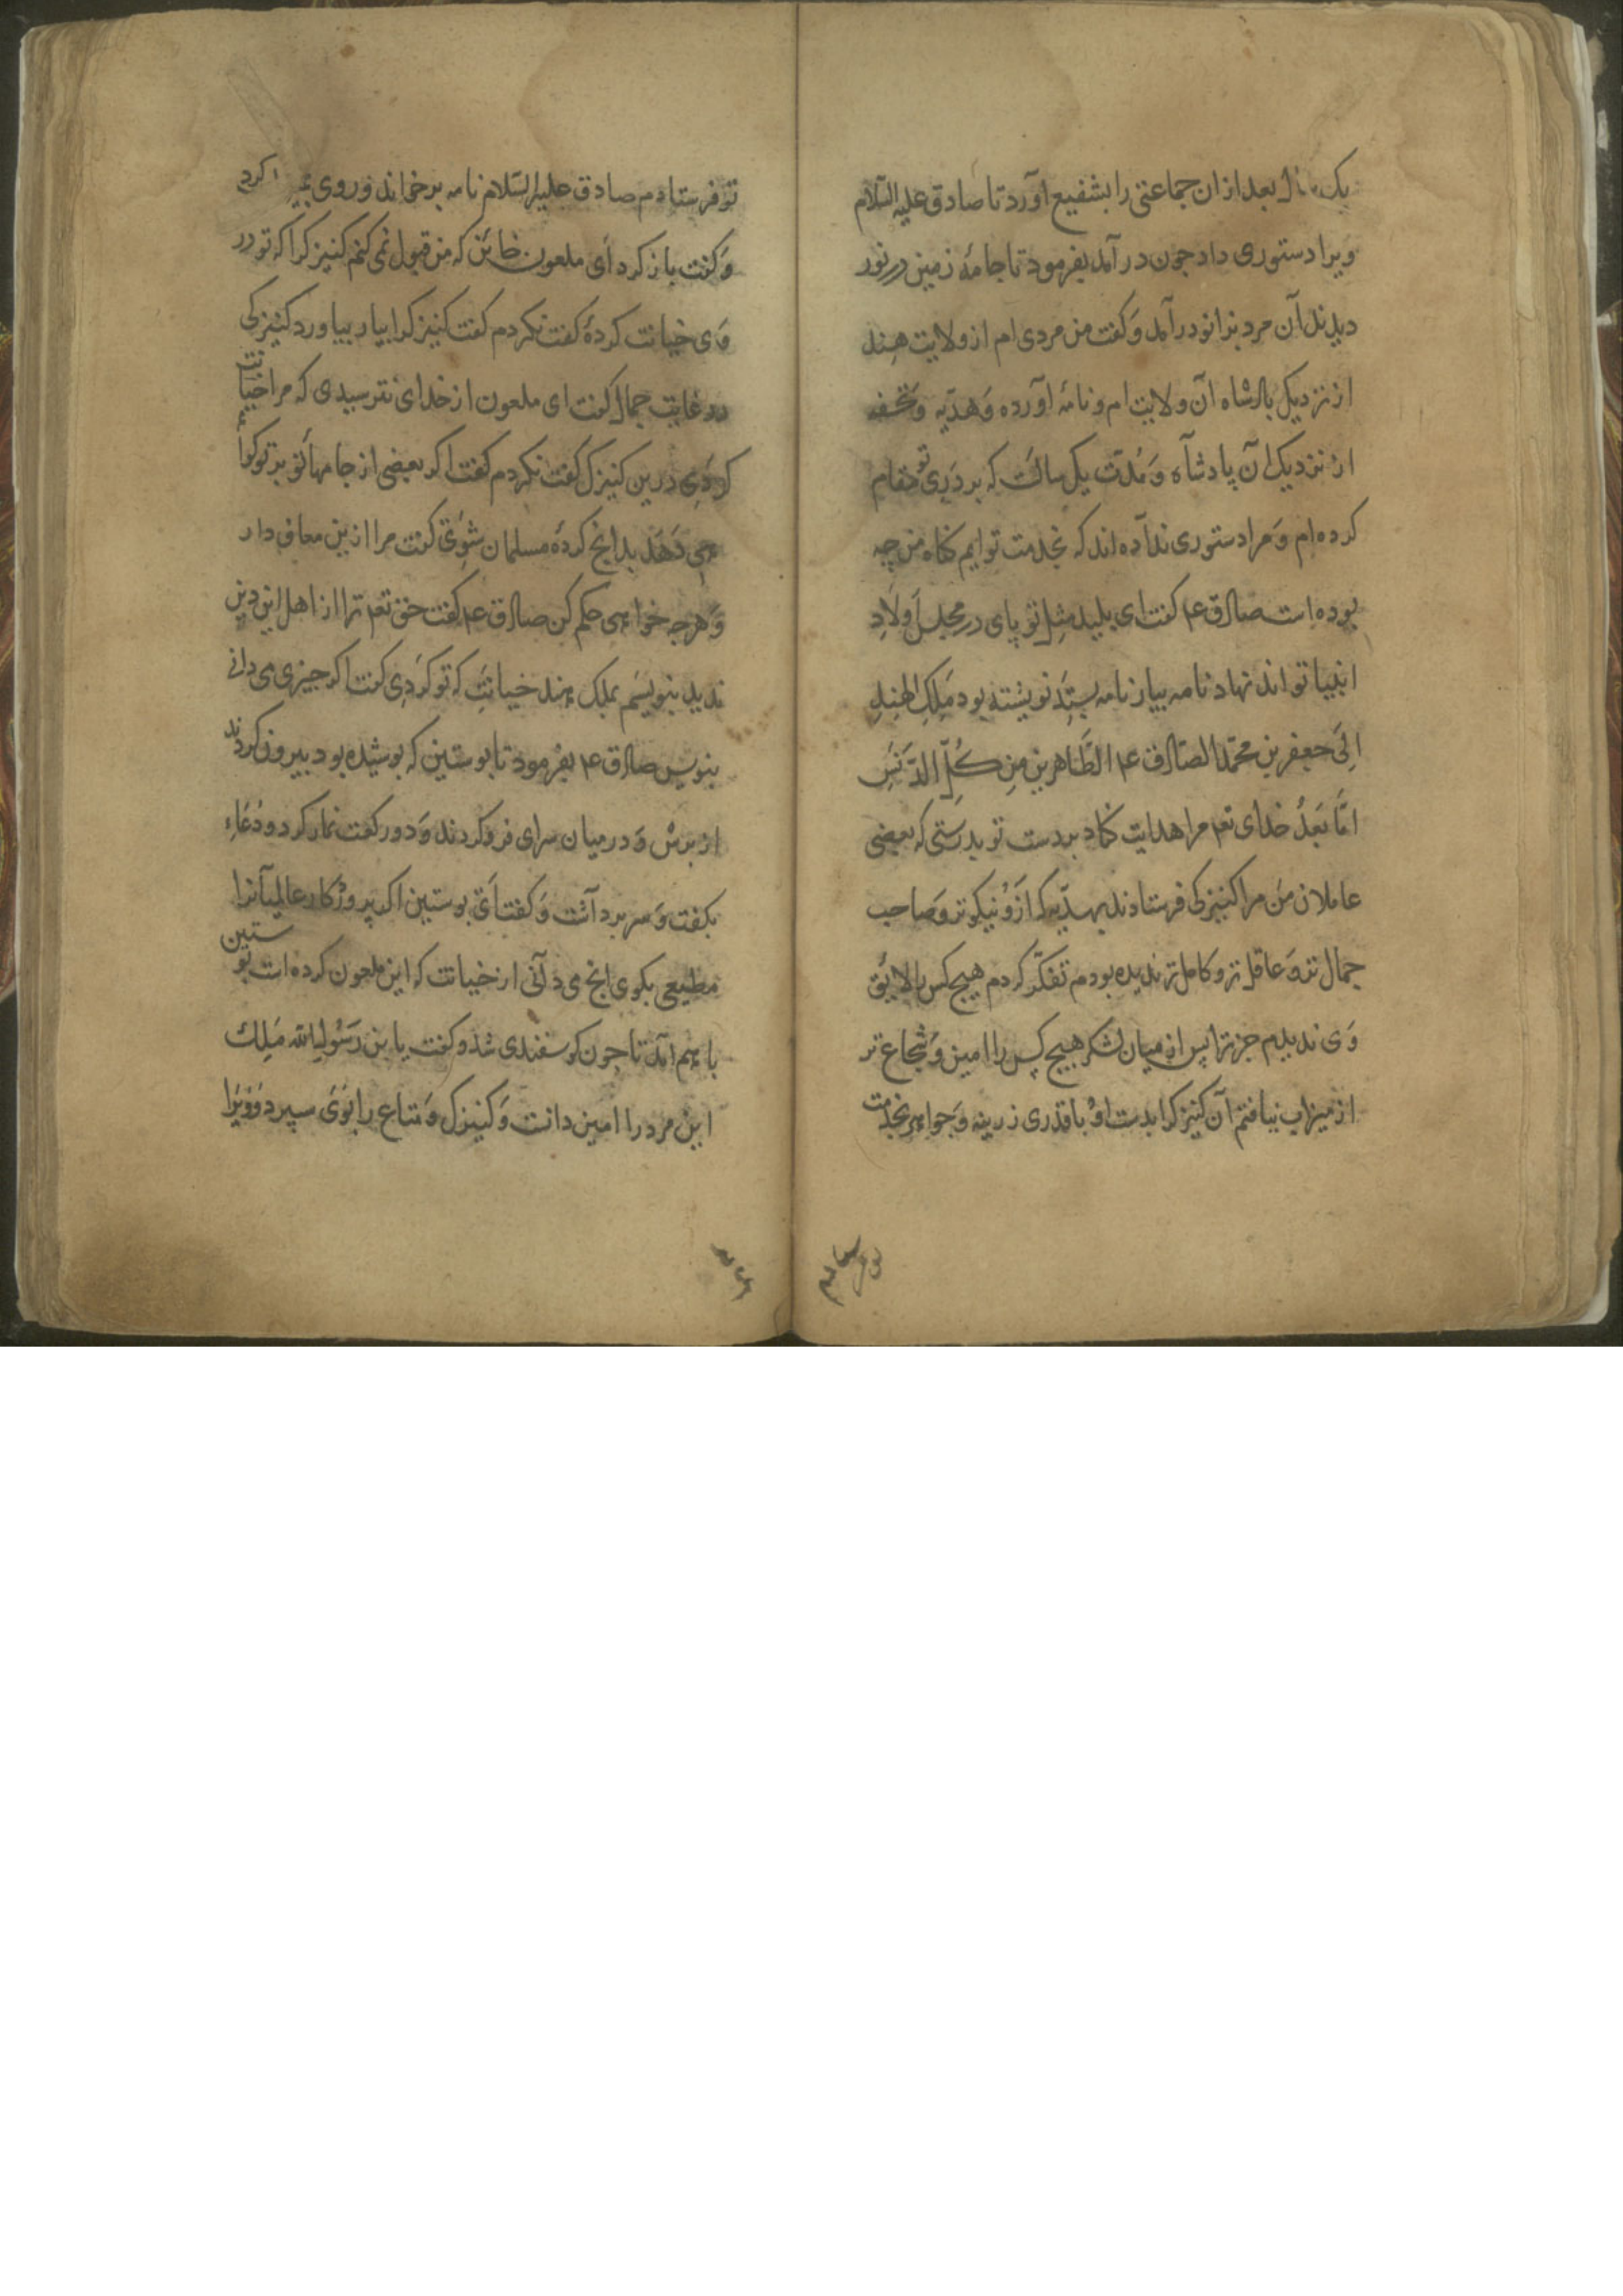 یک سال بعد از ان جماعتی را بشفیع آورد تا صادق علیه السّلام
ویرا دستوری داد جون در آمد بفرمود تا جامهٔ زمین در نور
دیدند آن مرد بزانو در آمد وَ کفت من مردی ام از ولایت هند
از نزدیک پادشاه آن ولایت ام و نامهٔ آورده وَ هدیّه وَ تحفه
از نزدیک آن پادشاه وَ مُدّت یک سالَست که بر دَرِ تو مقام
کرده ام وَ مرا دستوری نداده اند که بخدمت تو ایم کناه من چه
بوده است صادق ع کفت ای پلید مثل تو پای در مجلس اَولادِ
انبیا تواند نهاد نامه بیار نامه بستد نوشته بود مَلِکِ الهِندِ
اِلیَ جعفر بن محمّد الصادق ع الطّاهرین مِن کُلِّ الدَّنَسِ
امّا بَعدُ خدای تع مرا هدایت کناد بر دست تو بدرستی که بعضی
عاملان من مرا کنیزکی فرستادند بهدیّه که ازو نیکوتر و صاحب
جمال تر وَ عاقل تر و کامل تر ندیده بودم تفکّر کردم هیچ کس را لایق
وَی ندیدم جز ترا پس از میان لشکر هیچ کس را امین وَ شجاع تر
از میزاب نیافتم آن کنیزک را بدست اوُ با قدری زرینه وَ جواهر بخدمت
تو فرستادم صادق علیه السّلام نامه بر خواند و روی کرد
وَ کفت باز کرد اَی ملعون خائن که من قبول نمی کنم کنیزک را که تو در
وَی خیانت کردهٔ کفت نکردم کفت کنیزک را بیار بیاورد کنیزکی
در غایت جمال کفت ای ملعون از خدای نترسیدی که مرا خیانت
کردی درین کنیزک کفت نکردم کفت اکر بعضی از جامهاء تو بر تو کواء
می دَهَد بدانج کردهٔ مسلمان شوی کفت مرا از این معاف دار
وَ هرچه خواهی حکم کن صادق ع کفت حق تع ترا از اهل این دین
ندید بنویسم بملک هند خیانتِ که تو کردی کفت اکر جیزی می دانی
بنویس صادق ع بفرمود تا پوستین که پوشیده بود بیرون کردند
از برش وَ در میان سرای فرو کردند وَ دو رکعت نماز کرد و دُعاء
بکفت وَ سر برداشت وَ کفت اَی پوستین اکر پروردکار عالمیانرا
مطیعی بکوی انج می دانی از خیانت که این ملعون کرده است پوستین
با هم آمد تا جون کوسفندی شد و کفت یا بن رَسُولِ الله مَلِک
این مرد را امین دانست وَ کنیزک وَ متاع را بوَی سپرد وَ ویَرا